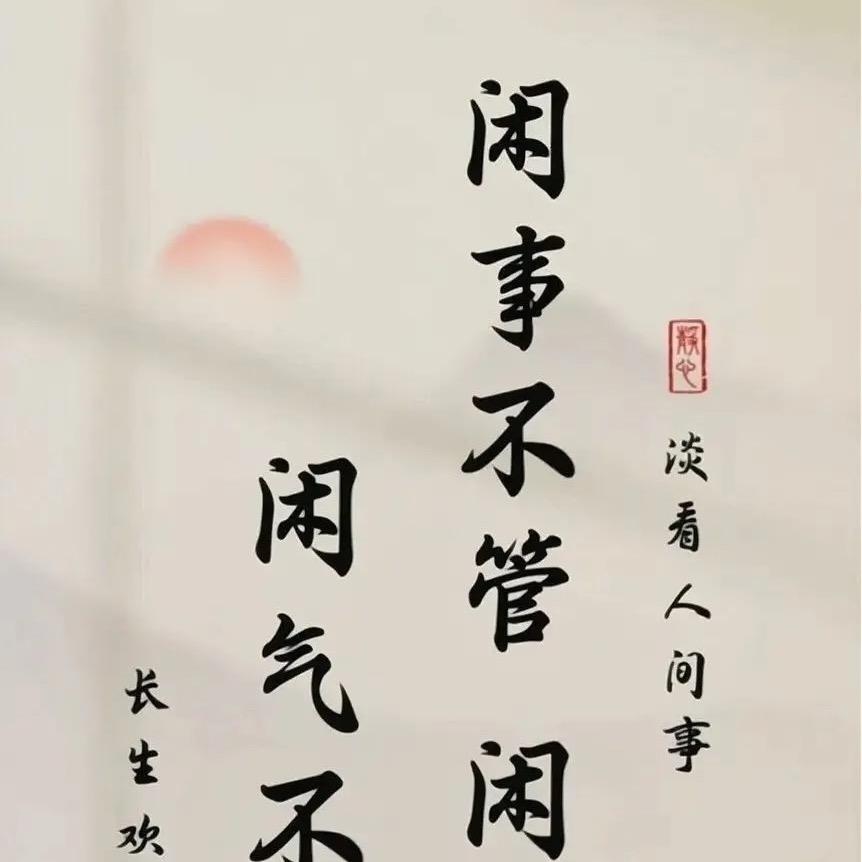 静心
淡看人间事
闲事不管 闲
闲气不
长生欢